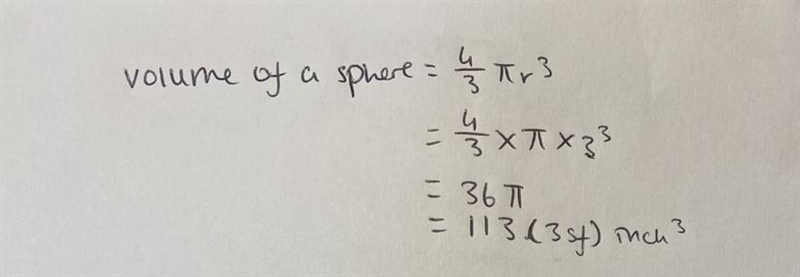 volume of a sphere = 4/3 πr³
= 4/3 × π × 3³
= 36 π
= 113 (3sf) inch³